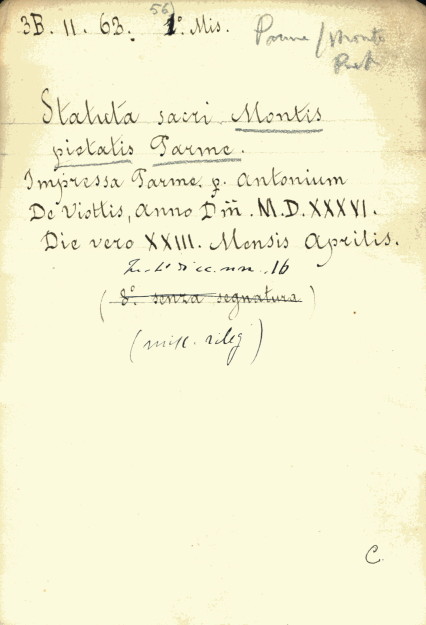 56)
3B. 11. 63. 1.° Mis.
Parma / Monte
Statuta sacri Montis
pietatis Parme.
Impressa Parme. p. Antonium
De Viottis, Anno Dm̄. M.D.XXXVI.
Die vero XXIII. Mensis Aprilis.
cc. nn. 16
(8.° senza segnatura)
(misc. rileg)
C